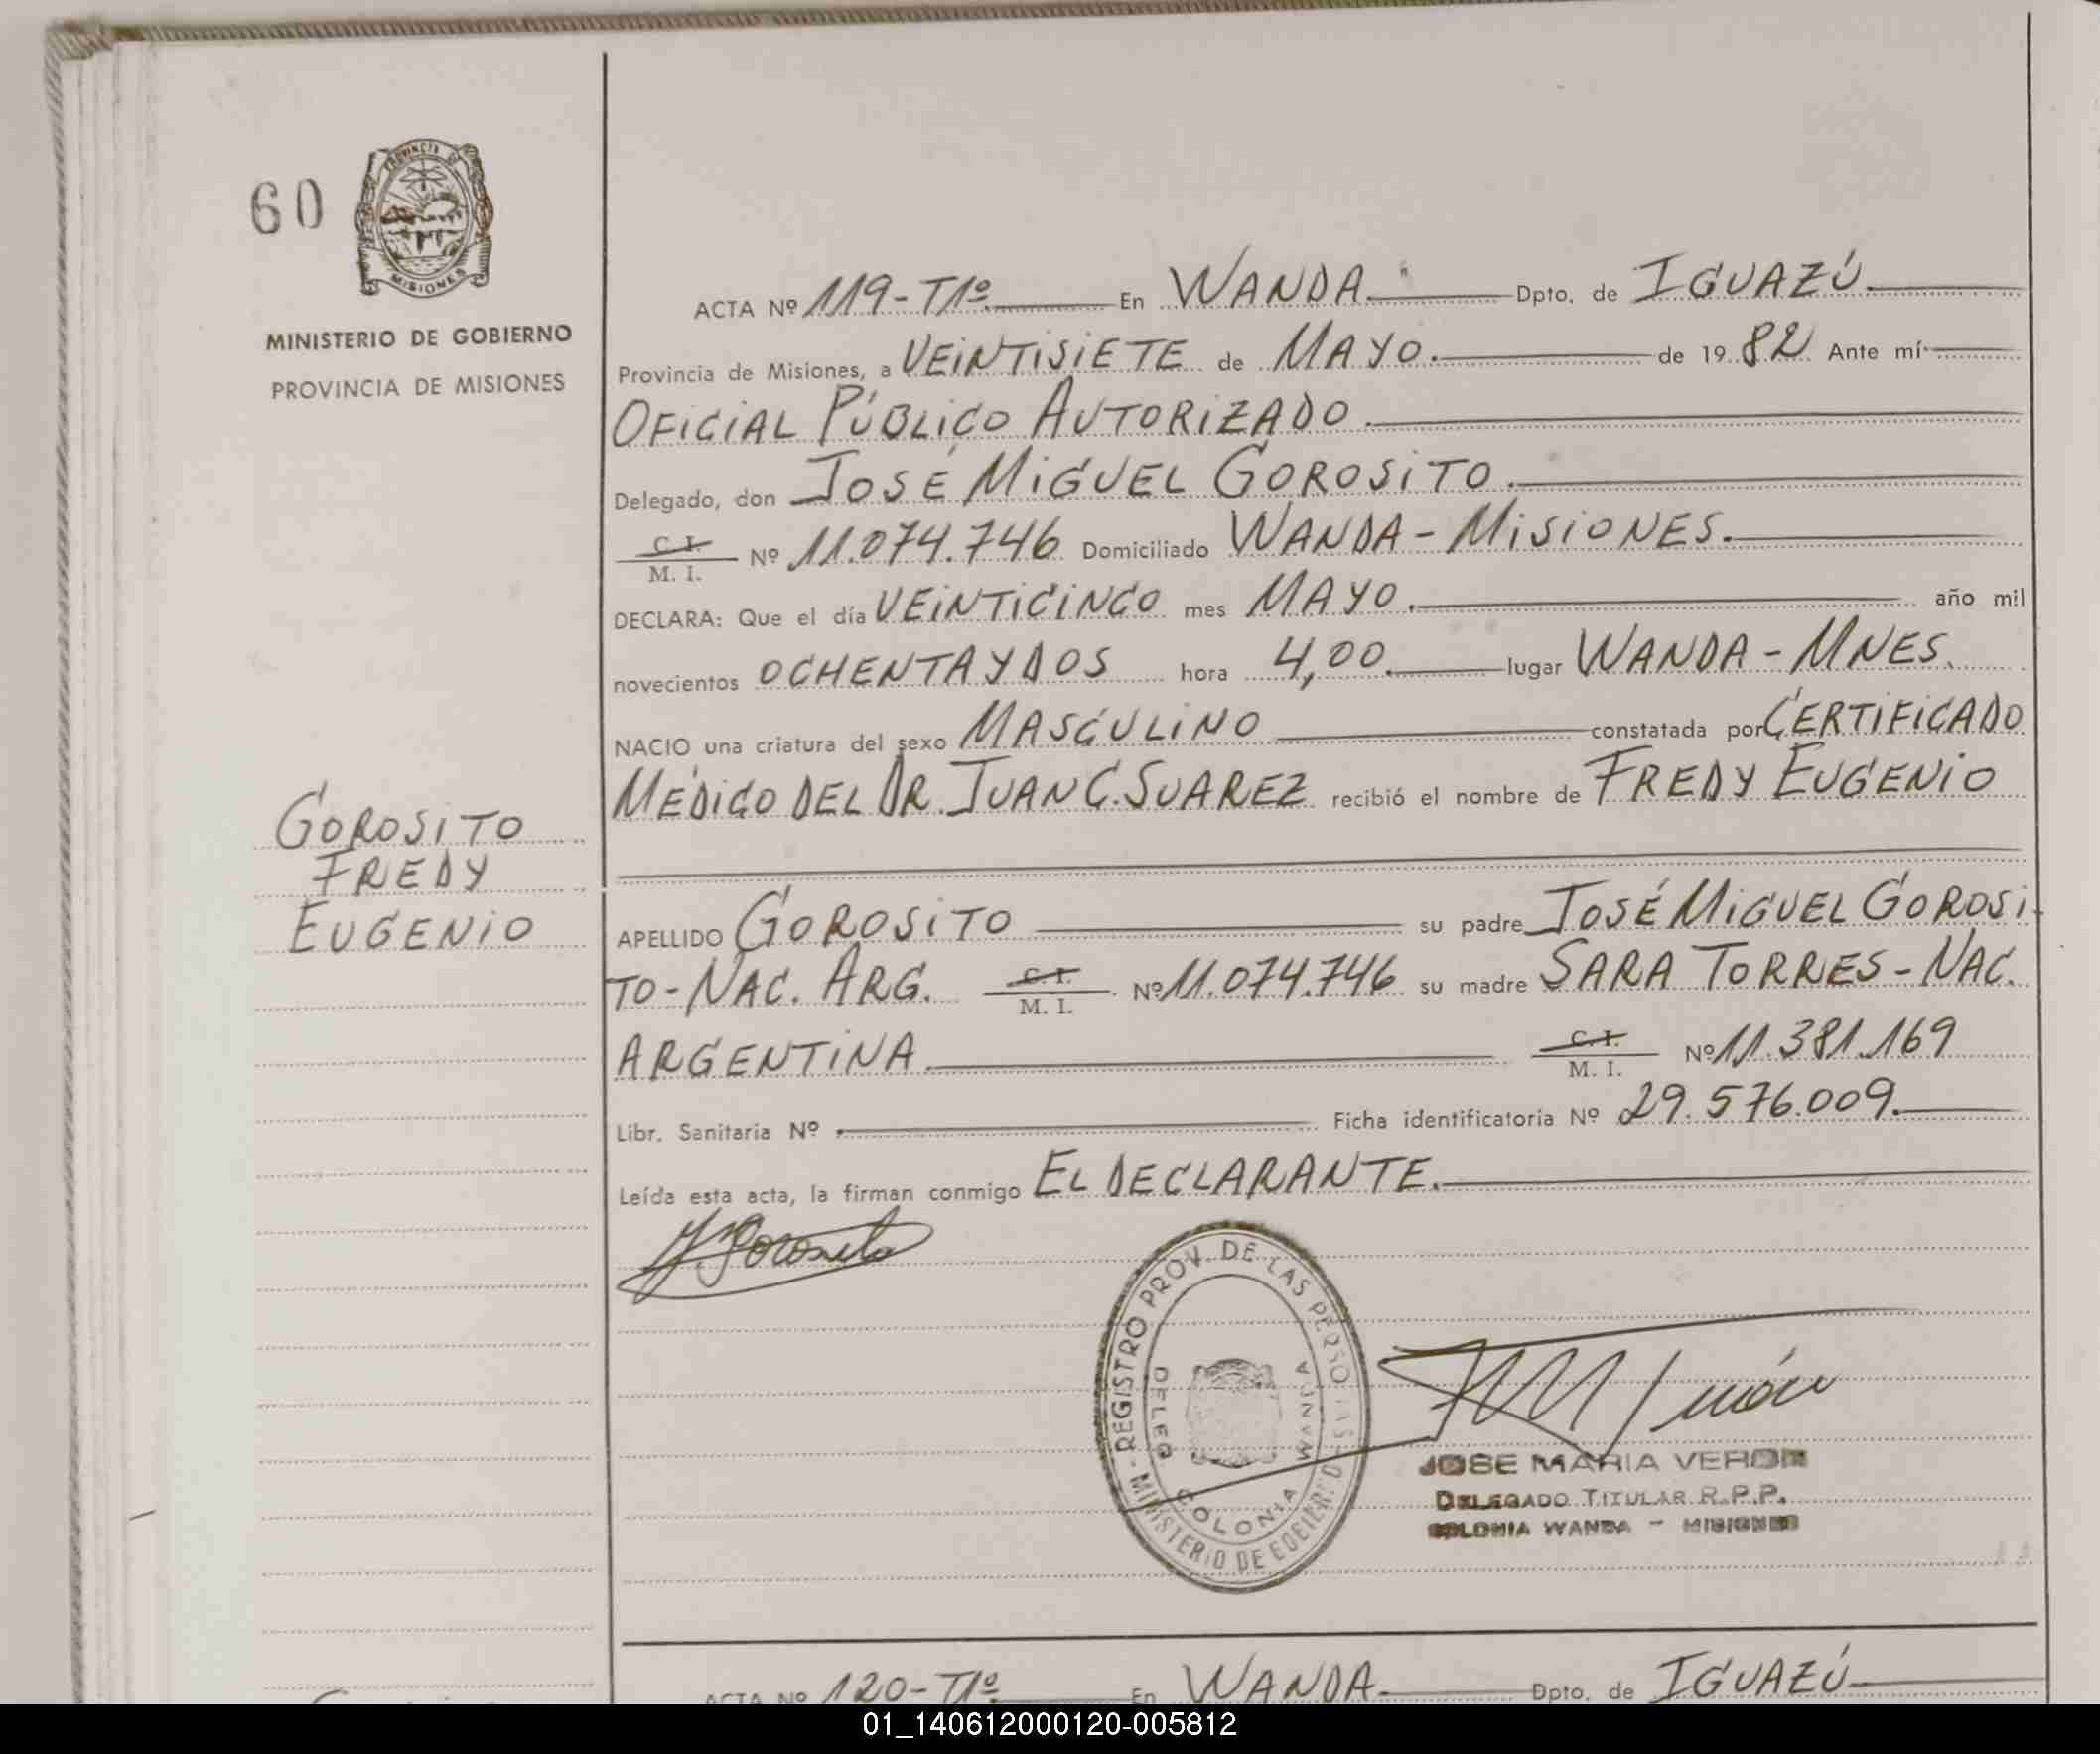 60
PROVINCIA DE
MISIONES
MINISTERIO DE GOBIERNO
PROVINCIA DE MISIONES
GOROSITO
FREDY
EUGENIO
ACTA Nº 119-T1º En WANDA Dpto. de IGUAZÚ
Provincia de Misiones, a VEINTISIETE de MAYO. de 1982 Ante mí
OFICIAL PÚBLICO AUTORIZADO.
Delegado, don JOSÉ MIGUEL GOROSITO.
C. I. / M. I. Nº 11.074.746 Domiciliado WANDA - MISIONES.
DECLARA: Que el día VEINTICINCO mes MAYO. año mil
novecientos OCHENTA Y DOS hora 4,00. lugar WANDA - MNES.
NACIO una criatura del sexo MASCULINO constatada por CERTIFICADO
MÉDICO DEL DR. JUAN C. SUAREZ recibió el nombre de FREDY EUGENIO
APELLIDO GOROSITO su padre JOSÉ MIGUEL GOROSI-
TO - NAC. ARG. C. I. / M. I. Nº 11.074.746 su madre SARA TORRES - NAC.
ARGENTINA C. I. / M. I. Nº 11.381.169
Libr. Sanitaria Nº Ficha identificatoria Nº 29.576.009.
Leída esta acta, la firman conmigo EL DECLARANTE.
REGISTRO PROV. DE LAS PERSONAS - MINISTERIO DE
DELEG. COLONIA WANDA
JOSE MARIA VERON
DELEGADO TITULAR R.P.P.
COLONIA WANDA - MISIONES
ACTA Nº 120-T1º En WANDA. Dpto. de IGUAZÚ
01_140612000120-005812